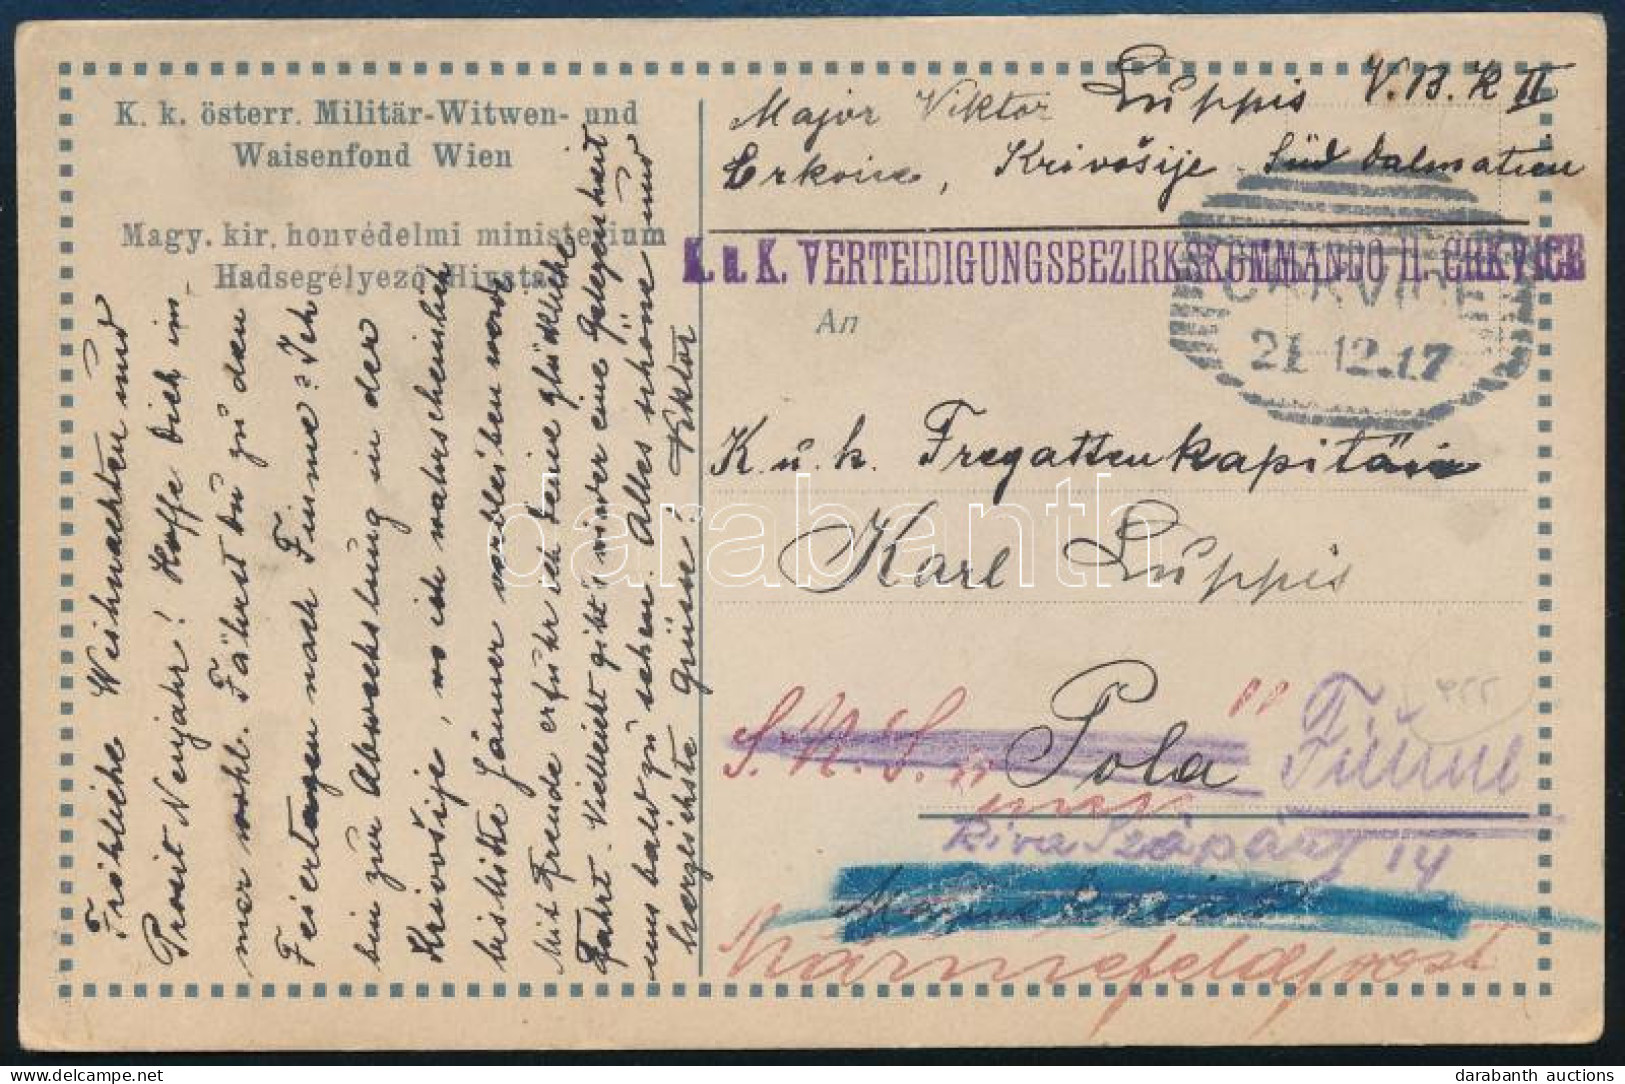 K. k. österr. Militär-Witwen- und
Waisenfond Wien
Magy. kir. honvédelmi ministerium
Hadsegélyező Hivatal
Fröhliche Weihnachten und
Prosit Neujahr! Hoffe Dich im-
mer wohl. Fährst Du zu den
Feiertagen nach Fiume? Ich
bin zur Abwechslung in der
Krivošije, wo ich wahrscheinlich
bis Mitte Jänner verbleiben werde
Mit Freude erfuhr ich Deine glückliche
Fahrt. Vielleicht gibt's wieder eine Gelegenheit
uns bald zu sehen. Alles schöne und
herzlichste Grüsse! Viktor
Major Viktor Luppis V.B.K II
Crkvice, Krivošije Süd Dalmatien
K. u. K. VERTEIDIGUNGSBEZIRKSKOMMANDO II. CRKVICE
CRKVICE
21 12.17
An
K. u. k. Fregattenkapitän
Karl Luppis
S.M.S. Pola Fiume
Riva Szápáry 14
Marinefeldpost
darabanth
darabanth auctions
www.darabanth.com